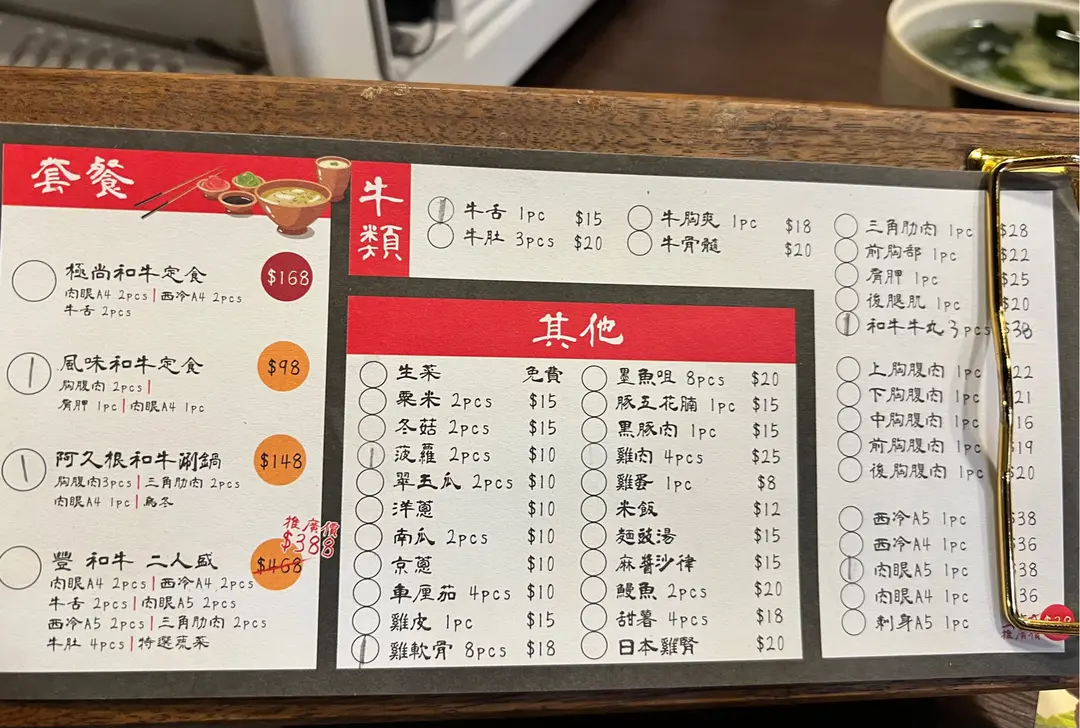 套餐
極尚和牛定食 $168
肉眼A4 2pcs | 西冷A4 2pcs
牛舌 2pcs
風味和牛定食 $98
胸腹肉 2pcs |
肩胛 1pc | 肉眼A4 1pc
阿久根和牛涮鍋 $148
胸腹肉3pcs | 三角肋肉 2pcs
肉眼A4 1pc | 烏冬
推廣價
$388
豐 和牛 二人盛 $468
肉眼A4 2pcs | 西冷A4 2pcs
牛舌 2pcs | 肉眼A5 2pcs
西冷A5 2pcs | 三角肋肉 2pcs
牛肚 4pcs | 特選蔬菜
牛類
牛舌 1pc $15
牛肚 3pcs $20
牛胸爽 1pc $18
牛骨髓 $20
三角肋肉 1pc $28
前胸部 1pc $22
肩胛 1pc $25
後腿肌 1pc $20
和牛牛丸 3pcs $38
上胸腹肉 1pc 22
下胸腹肉 1pc 21
中胸腹肉 1pc 16
前胸腹肉 1pc $19
後胸腹肉 1pc $20
西冷A5 1pc $38
西冷A4 1pc $36
肉眼A5 1pc $38
肉眼A4 1pc 36
刺身A5 1pc
推廣價
其他
生菜 免費
粟米 2pcs $15
冬菇 2pcs $15
菠蘿 2pcs $10
翠玉瓜 2pcs $10
洋蔥 $10
南瓜 2pcs $10
京蔥 $10
車厘茄 4pcs $10
雞皮 1pc $15
雞軟骨 8pcs $18
墨魚咀 8pcs $20
豚五花腩 1pc $15
黑豚肉 1pc $15
雞肉 4pcs $25
雞蛋 1pc $8
米飯 $12
麵豉湯 $15
麻醬沙律 $15
鰻魚 2pcs $20
甜薯 4pcs $18
日本雞腎 $20